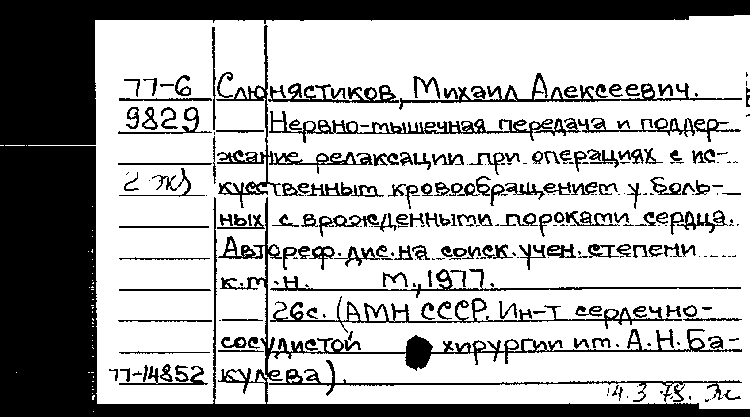 77-6 Слюнястиков, Михаил Алексеевич.
9829 Нервно-мышечная передача и поддер-
жание релаксации при операциях с ис-
2 экз кусственным кровообращением у боль-
ных с врожденными пороками сердца.
Автореф. дис. на соиск. учен. степени
к.м.н. М., 1977.
26с. (АМН СССР. Ин-т сердечно-
сосудистой хирургии им. А.Н. Ба-
77-14852 кулева).
14.3.78.